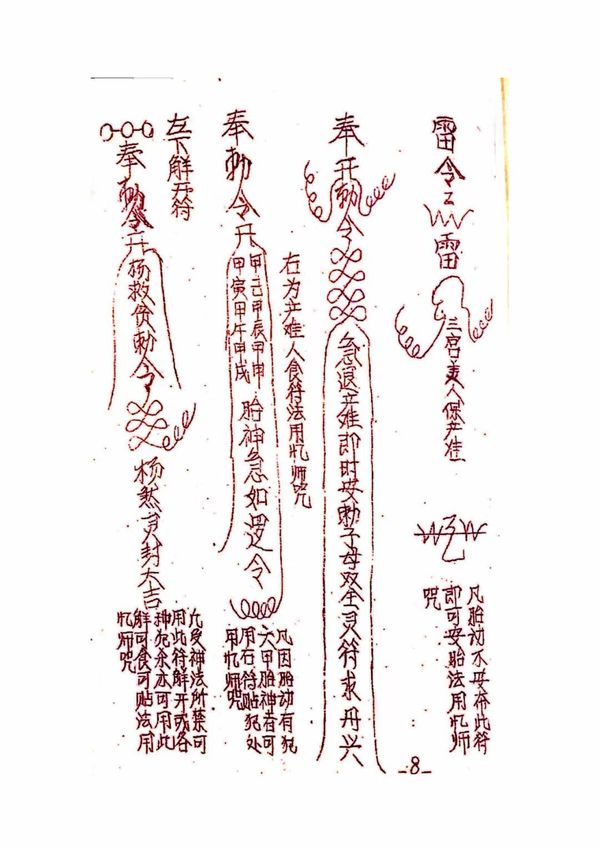 雷令
雷
三宫美人保产佳
凡胎动不安奔此符
即可安胎法用忆师
咒
奉开勅令
急退产难即时安勅子母双全灵符求丹兴
右为产难人食符法用忆师咒
奉勅令
甲子甲辰甲申
甲寅甲午甲戌
胎神急如逻令
凡因胎动有犯
六甲胎神者可
用石符贴犯处
用忆师咒
左下解开符
奉勅令
杨救贫勅令
杨煞灵封大吉
凡受神法所禁可
用此符解开或各
种犯杀亦可用此
解可食可贴法用
忆师咒
-8-